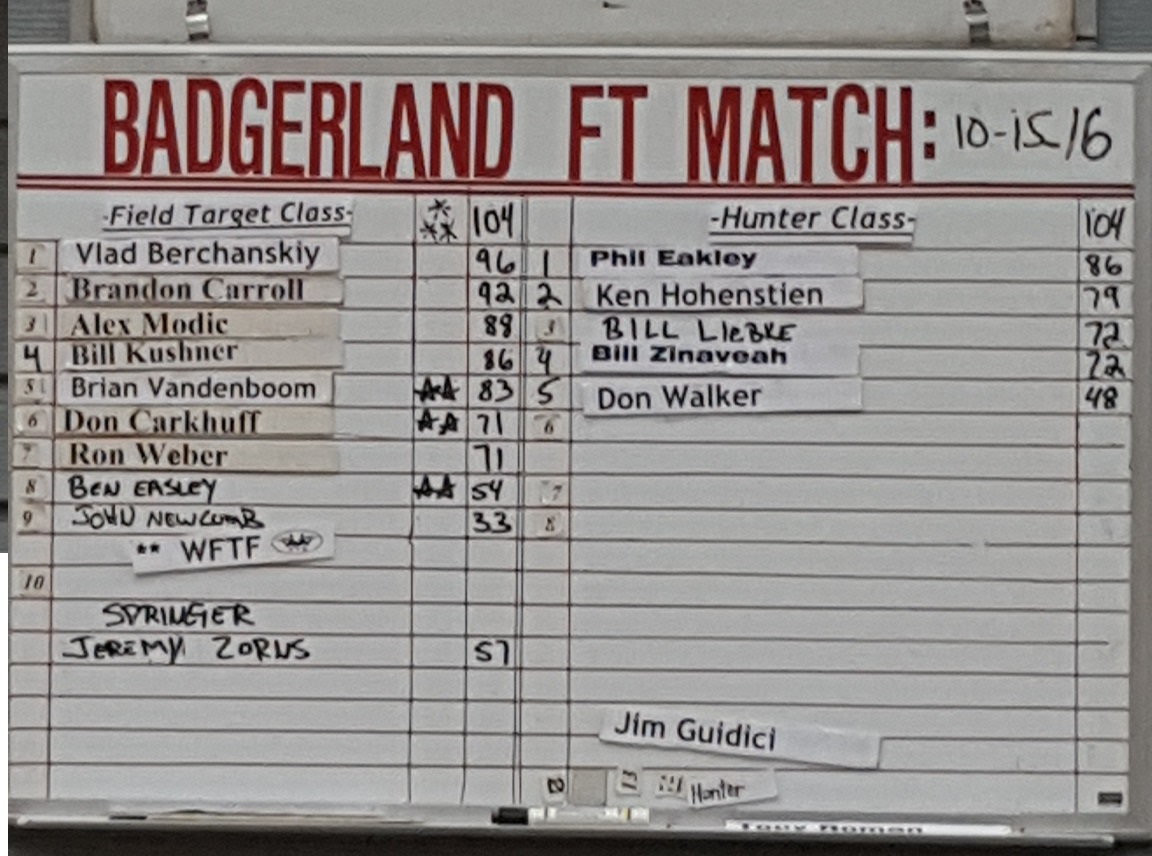 BADGERLAND FT MATCH: 10-15/6
-Field Target Class- *** 104
1 Vlad Berchanskiy 96
2 Brandon Carroll 92
3 Alex Modic 88
4 Bill Kushner 86
5 Brian Vandenboom ** 83
6 Don Carkhuff ** 71
7 Ron Weber 71
8 BEN EASLEY ** 54
9 JOHN NEWCUMB 33
** WFTF
10
SPRINGER
JEREMY ZORNS 57
-Hunter Class- 104
1 Phil Eakley 86
2 Ken Hohenstien 79
3 BILL LIEBKE 72
4 Bill Zinaveah 72
5 Don Walker 48
6
7
8
Jim Guidici
Hunter